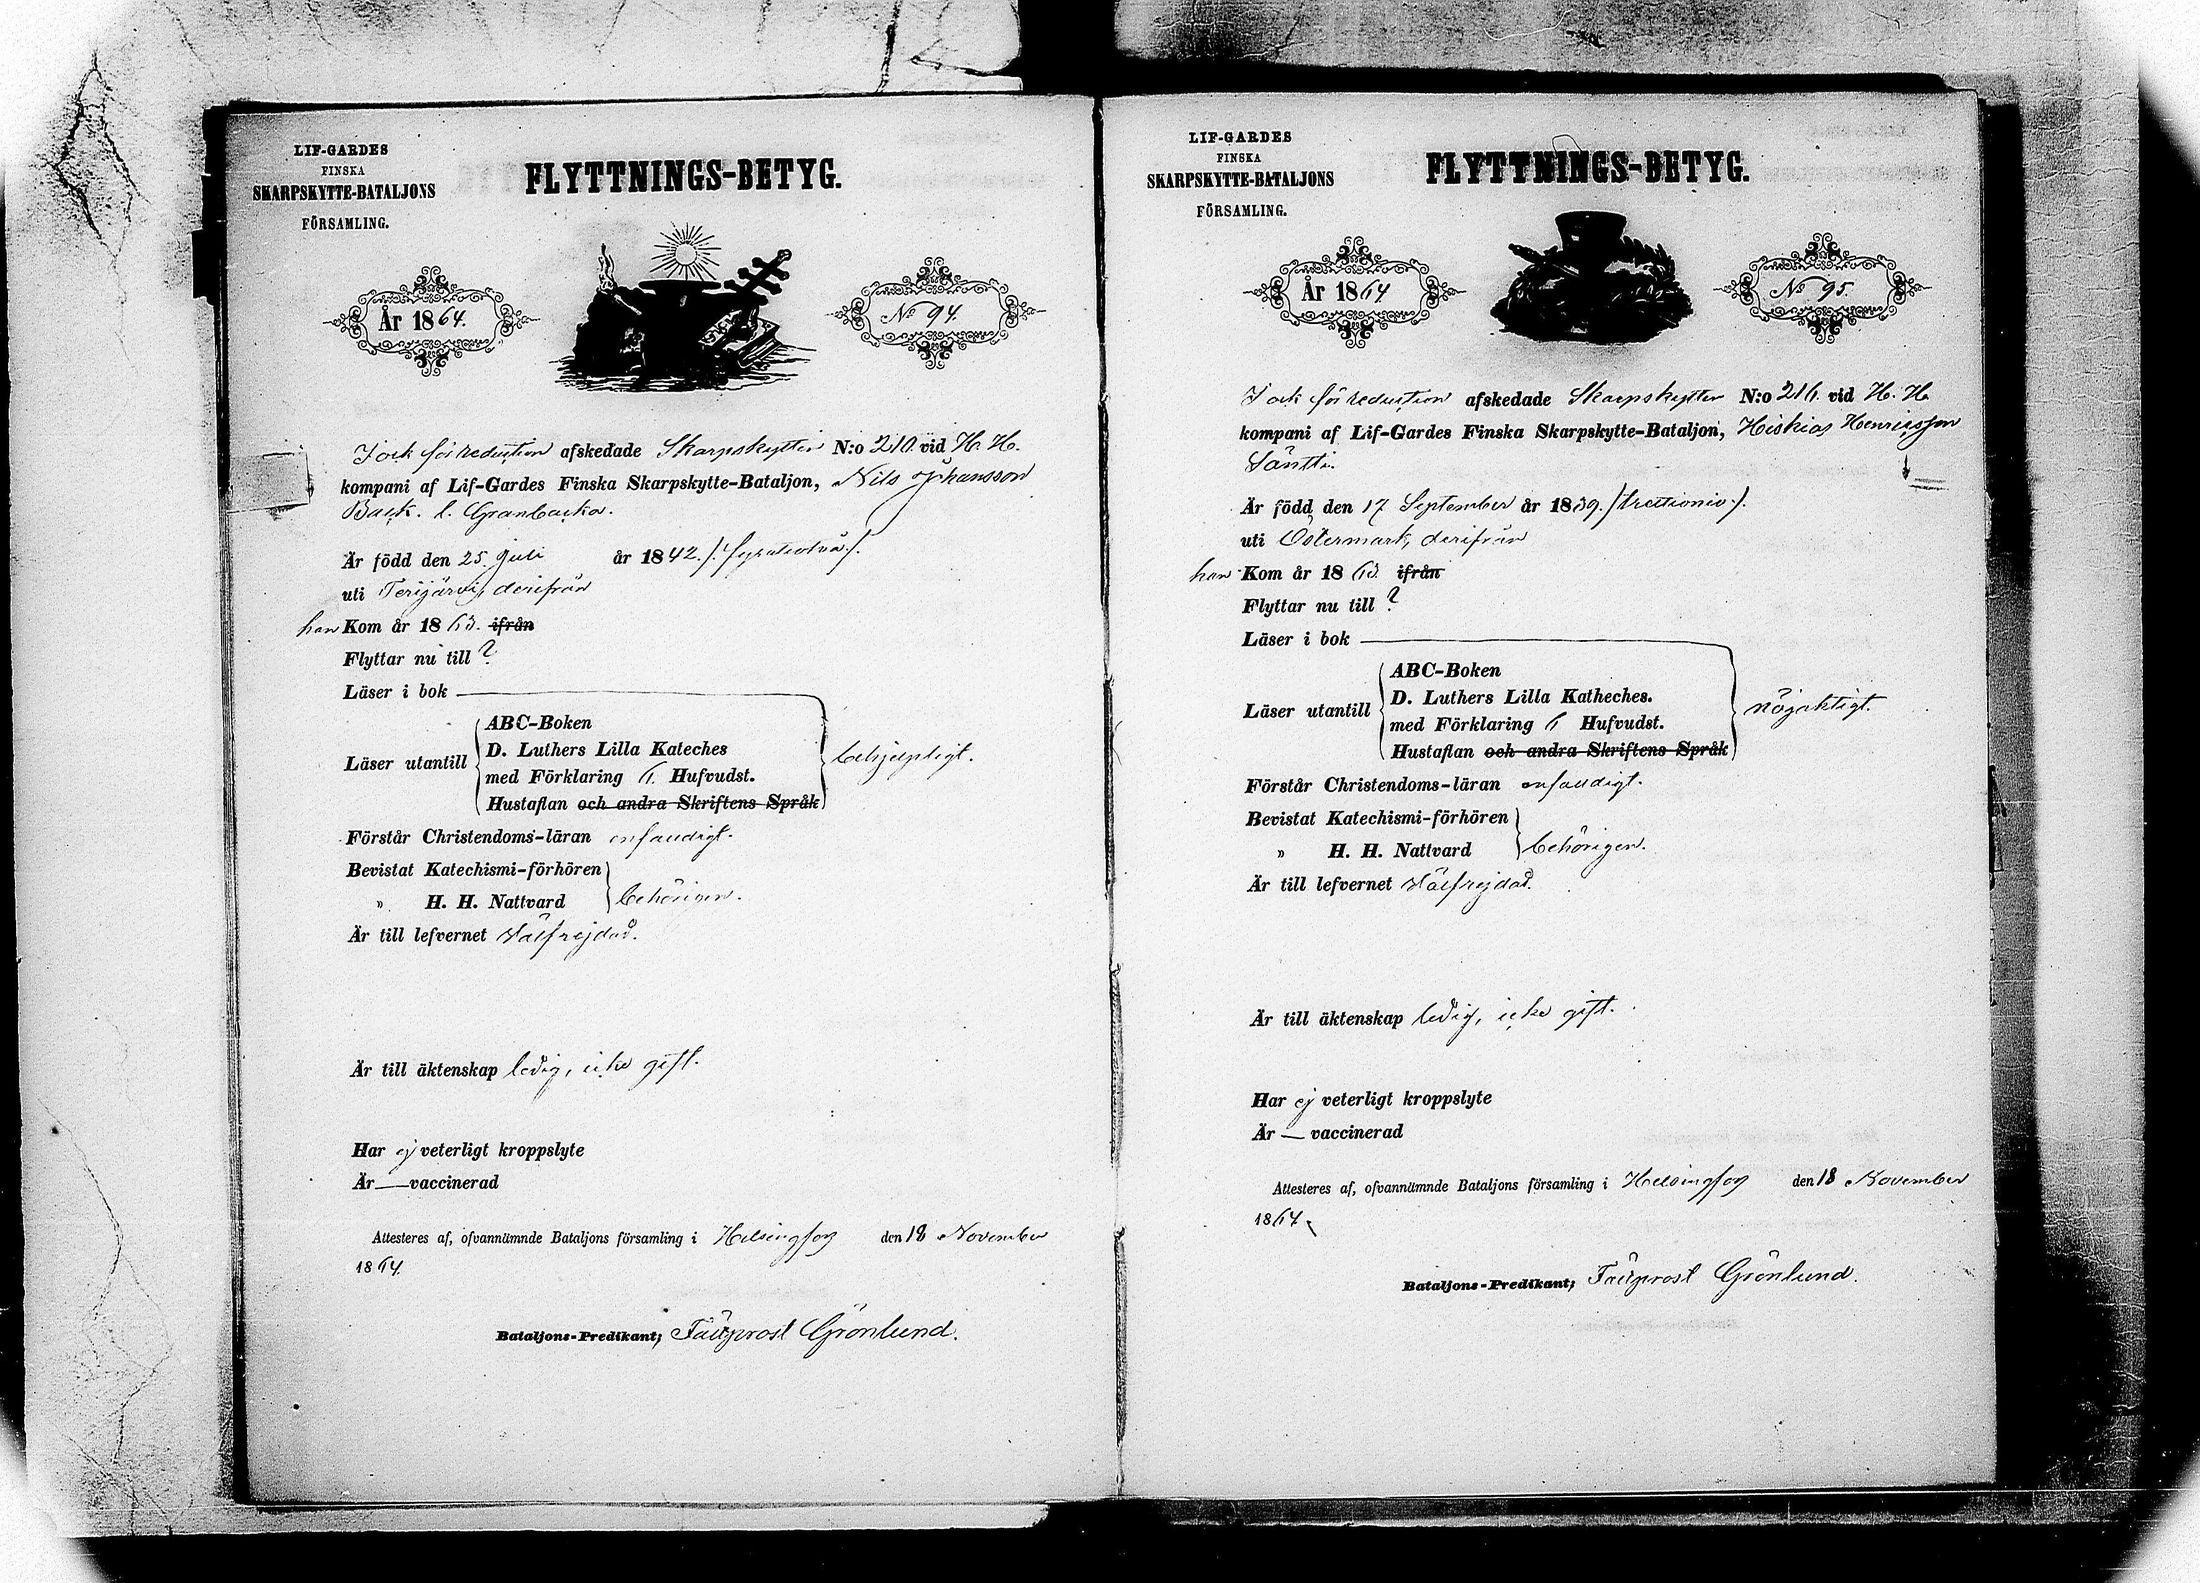 LIF-GARDES
FINSKA
SKARPSKYTTE-BATALJONS
FÖRSAMLING.
FLYTTNINGS-BETYG.
År 1864.
No 94.
för reduction afskedade Skarpskytten N:o 210 vid H. H.
kompani af Lif-Gardes Finska Skarpskytte-Bataljon, Nils Johansson
Back. l. Granbacka.
Är född den 25. Juli år 1842. /. fyratiotvå ./.
uti Terijärvi, derifrån
han Kom år 1863. ifrån
Flyttar nu till ?
Läser i bok
Läser utantill
ABC-Boken
D. Luthers Lilla Kateches
med Förklaring 6. Hufvudst.
Hustaflan och andra Skriftens Språk
behjelpligt.
Förstår Christendoms-läran enfaldigt.
Bevistat Katechismi-förhören
" H. H. Nattvard
behörigen.
Är till lefvernet Välfrejdad.
Är till äktenskap ledig, icke gift.
Har ej veterligt kroppslyte
Är — vaccinerad
Attesteres af, ofvannämnde Bataljons församling i Helsingfors den 18 November
1864.
Bataljons-Predikant, Fältprost Grönlund.
LIF-GARDES
FINSKA
SKARPSKYTTE-BATALJONS
FÖRSAMLING.
FLYTTNINGS-BETYG.
År 1864
No 95.
för reduction afskedade Skarpskytten N:o 216. vid H. H.
kompani af Lif-Gardes Finska Skarpskytte-Bataljon, Hiskias Henricsson
Säntti.
Är född den 17 September år 1839. /trettionio./.
uti Östermark, derifrån
han Kom år 1863. ifrån
Flyttar nu till ?
Läser i bok
Läser utantill
ABC-Boken
D. Luthers Lilla Katheches.
med Förklaring 6 Hufvudst.
Hustaflan och andra Skriftens Språk
nöjaktigt.
Förstår Christendoms-läran enfaldigt.
Bevistat Katechismi-förhören
" H. H. Nattvard
behörigen.
Är till lefvernet Välfrejdad.
Är till äktenskap ledig, icke gift.
Har ej veterligt kroppslyte
Är — vaccinerad
Attesteres af, ofvannämnde Bataljons församling i Helsingfors den 18 November
1864.
Bataljons-Predikant, Fältprost Grönlund.